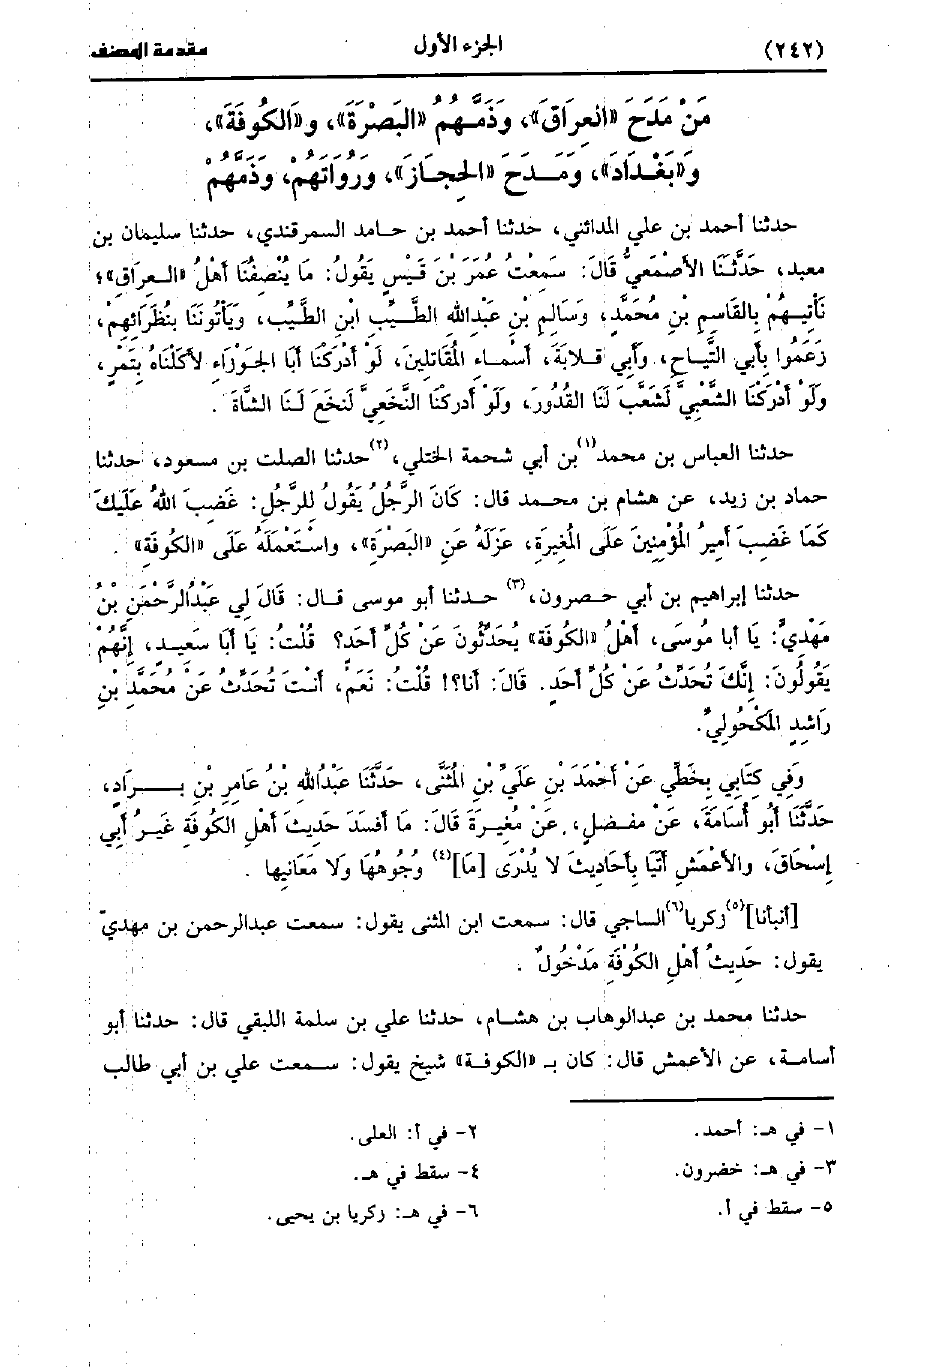 (٢٤٢) الجزء الأول مقدمة المصنف
مَنْ مَدَحَ «العِرَاقَ»، وَذَمَّهُمُ «البَصْرَةَ»، و«الكُوفَةَ»،
وَ«بَغْدَادَ»، ومَدَحَ «الحِجَازَ»، ورُوَاتَهُمْ، وذَمَّهُمْ
حدثنا أحمد بن علي المدائني، حدثنا أحمد بن حامد السمرقندي، حدثنا سليمان بن
معبد، حَدَّثَنَا الأصْمَعِيُّ قَالَ: سَمِعتُ عُمَرَ بْنَ قَيْسٍ يَقُولُ: مَا يُنْصِفُنَا أَهْلُ «العِرَاقِ»؛
نَأْتِيهُمْ بِالقَاسِمِ بْنِ مُحَمَّدٍ، وَسَالِمِ بْنِ عَبْدِاللهِ الطَّيِّبِ ابْنِ الطَّيِّبِ، ويَأْتُونَنَا بِنُظَرَائِهِمْ،
زَعَمُوا بِأَبي التَّيَاحِ، وأَبِي قلابَةَ، أَسْمَاءِ المُقَاتِلِينَ، لَوْ أَدْرَكْنَا أَبَا الجَوْزَاءِ لأَكَلْنَاهُ بِتَمْرٍ،
وَلَوْ أَدْرَكْنَا الشَّعْبِيَّ لَشَعَّبَ لَنَا القُدُورَ، وَلَوْ أَدْرَكْنَا النَّخَعِيَّ لَنَخَعَ لَنَا الشَّاةَ .
حدثنا العباس بن محمد(١) بن أبي شحمة الختلي،(٢) حدثنا الصلت بن مسعود، حدثنا
حماد بن زيد، عن هشام بن محمد قال: كَانَ الرَّجُلُ يَقُولُ لِلرَّجُلِ: غَضِبَ اللهُ عَلَيكَ
كَمَا غَضِبَ أَمِيرُ المُؤْمِنِينَ عَلَى المُغِيرَةِ، عَزَلَهُ عَنِ «البَصْرَةِ»، واسْتَعْمَلَهُ عَلَى «الكُوفَةِ» .
حدثنا إبراهيم بن أبي حصرون،(٣) حدثنا أبو موسى قال: قَالَ لِي عَبْدُالرَّحْمَنِ بْنُ
مَهْدِيٍّ: يَا أَبا مُوسَى، أَهْلُ «الكُوفَةِ» يُحَدِّثُونَ عَنْ كُلِّ أَحَدٍ؟ قُلْتُ: يَا أَبَا سَعِيدٍ، إِنَّهُمْ
يَقُولُونَ: إِنَّكَ تُحَدِّثُ عَنْ كُلِّ أَحَدٍ. قَالَ: أَنا؟! قُلْتُ: نَعَمْ، أَنْتَ تُحَدِّثُ عَنْ مُحَمَّدِ بْنِ
رَاشِدٍ المَكْحُولِيِّ.
وَفِي كِتَابِي بِخَطِّي عَنْ أَحْمَدَ بْنِ عَلَيِّ بْنِ المُثَنَّى، حَدَّثَنَا عَبْدُاللهِ بْنُ عَامِرِ بْنِ بَرَّادٍ،
حَدَّثَنَا أَبُو أُسَامَةَ، عَنْ مفضلٍ، عَنْ مُغِيرَةَ قَالَ: مَا أَفسَدَ حَدِيثَ أَهْلِ الكُوفَةِ غَيرُ أَبِي
إِسْحَاقَ، والأعْمَشِ أَتَيَا بِأَحَادِيثَ لا يُدْرَى [مَا](٤) وُجُوهُهَا وَلا مَعَانِيها .
[أنبأنا](٥) زكريا(٦) الساجي قال: سمعت ابن المثنى يقول: سمعت عبدالرحمن بن مهديّ
يقول: حَدِيثُ أَهْلِ الكُوْفَةِ مَدْخُولٌ .
حدثنا محمد بن عبدالوهاب بن هشام، حدثنا علي بن سلمة اللبقي قال: حدثنا أبو
أسامة، عن الأعمش قال: كان بـ «الكوفة» شيخ يقول: سمعت علي بن أبي طالب
١- في هـ: أحمد. ٢- في أ: العلى.
٣- في هـ: خضرون. ٤- سقط في هـ.
٥- سقط في أ. ٦- في هـ: زكريا بن يحيى.